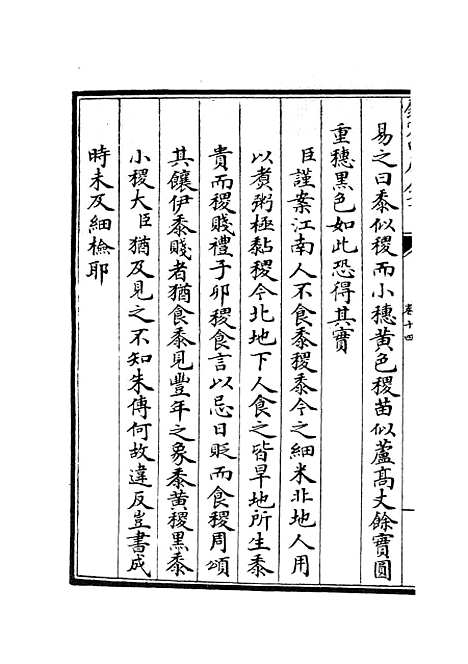 卷十四
易之曰黍似稷而小穗黃色稷苗似蘆高丈餘實圓
重穗黑色如此恐得其實
臣謹案江南人不食黍稷黍今之細米北地人用
以煑粥極黏稷今北地下人食之皆旱地所生黍
貴而稷賤禮子卯稷食言以忌日貶而食稷周頌
其饟伊黍賤者猶食黍見豐年之象黍黃稷黑黍
小稷大臣猶及見之不知朱傳何故違反豈書成
時未及細檢耶